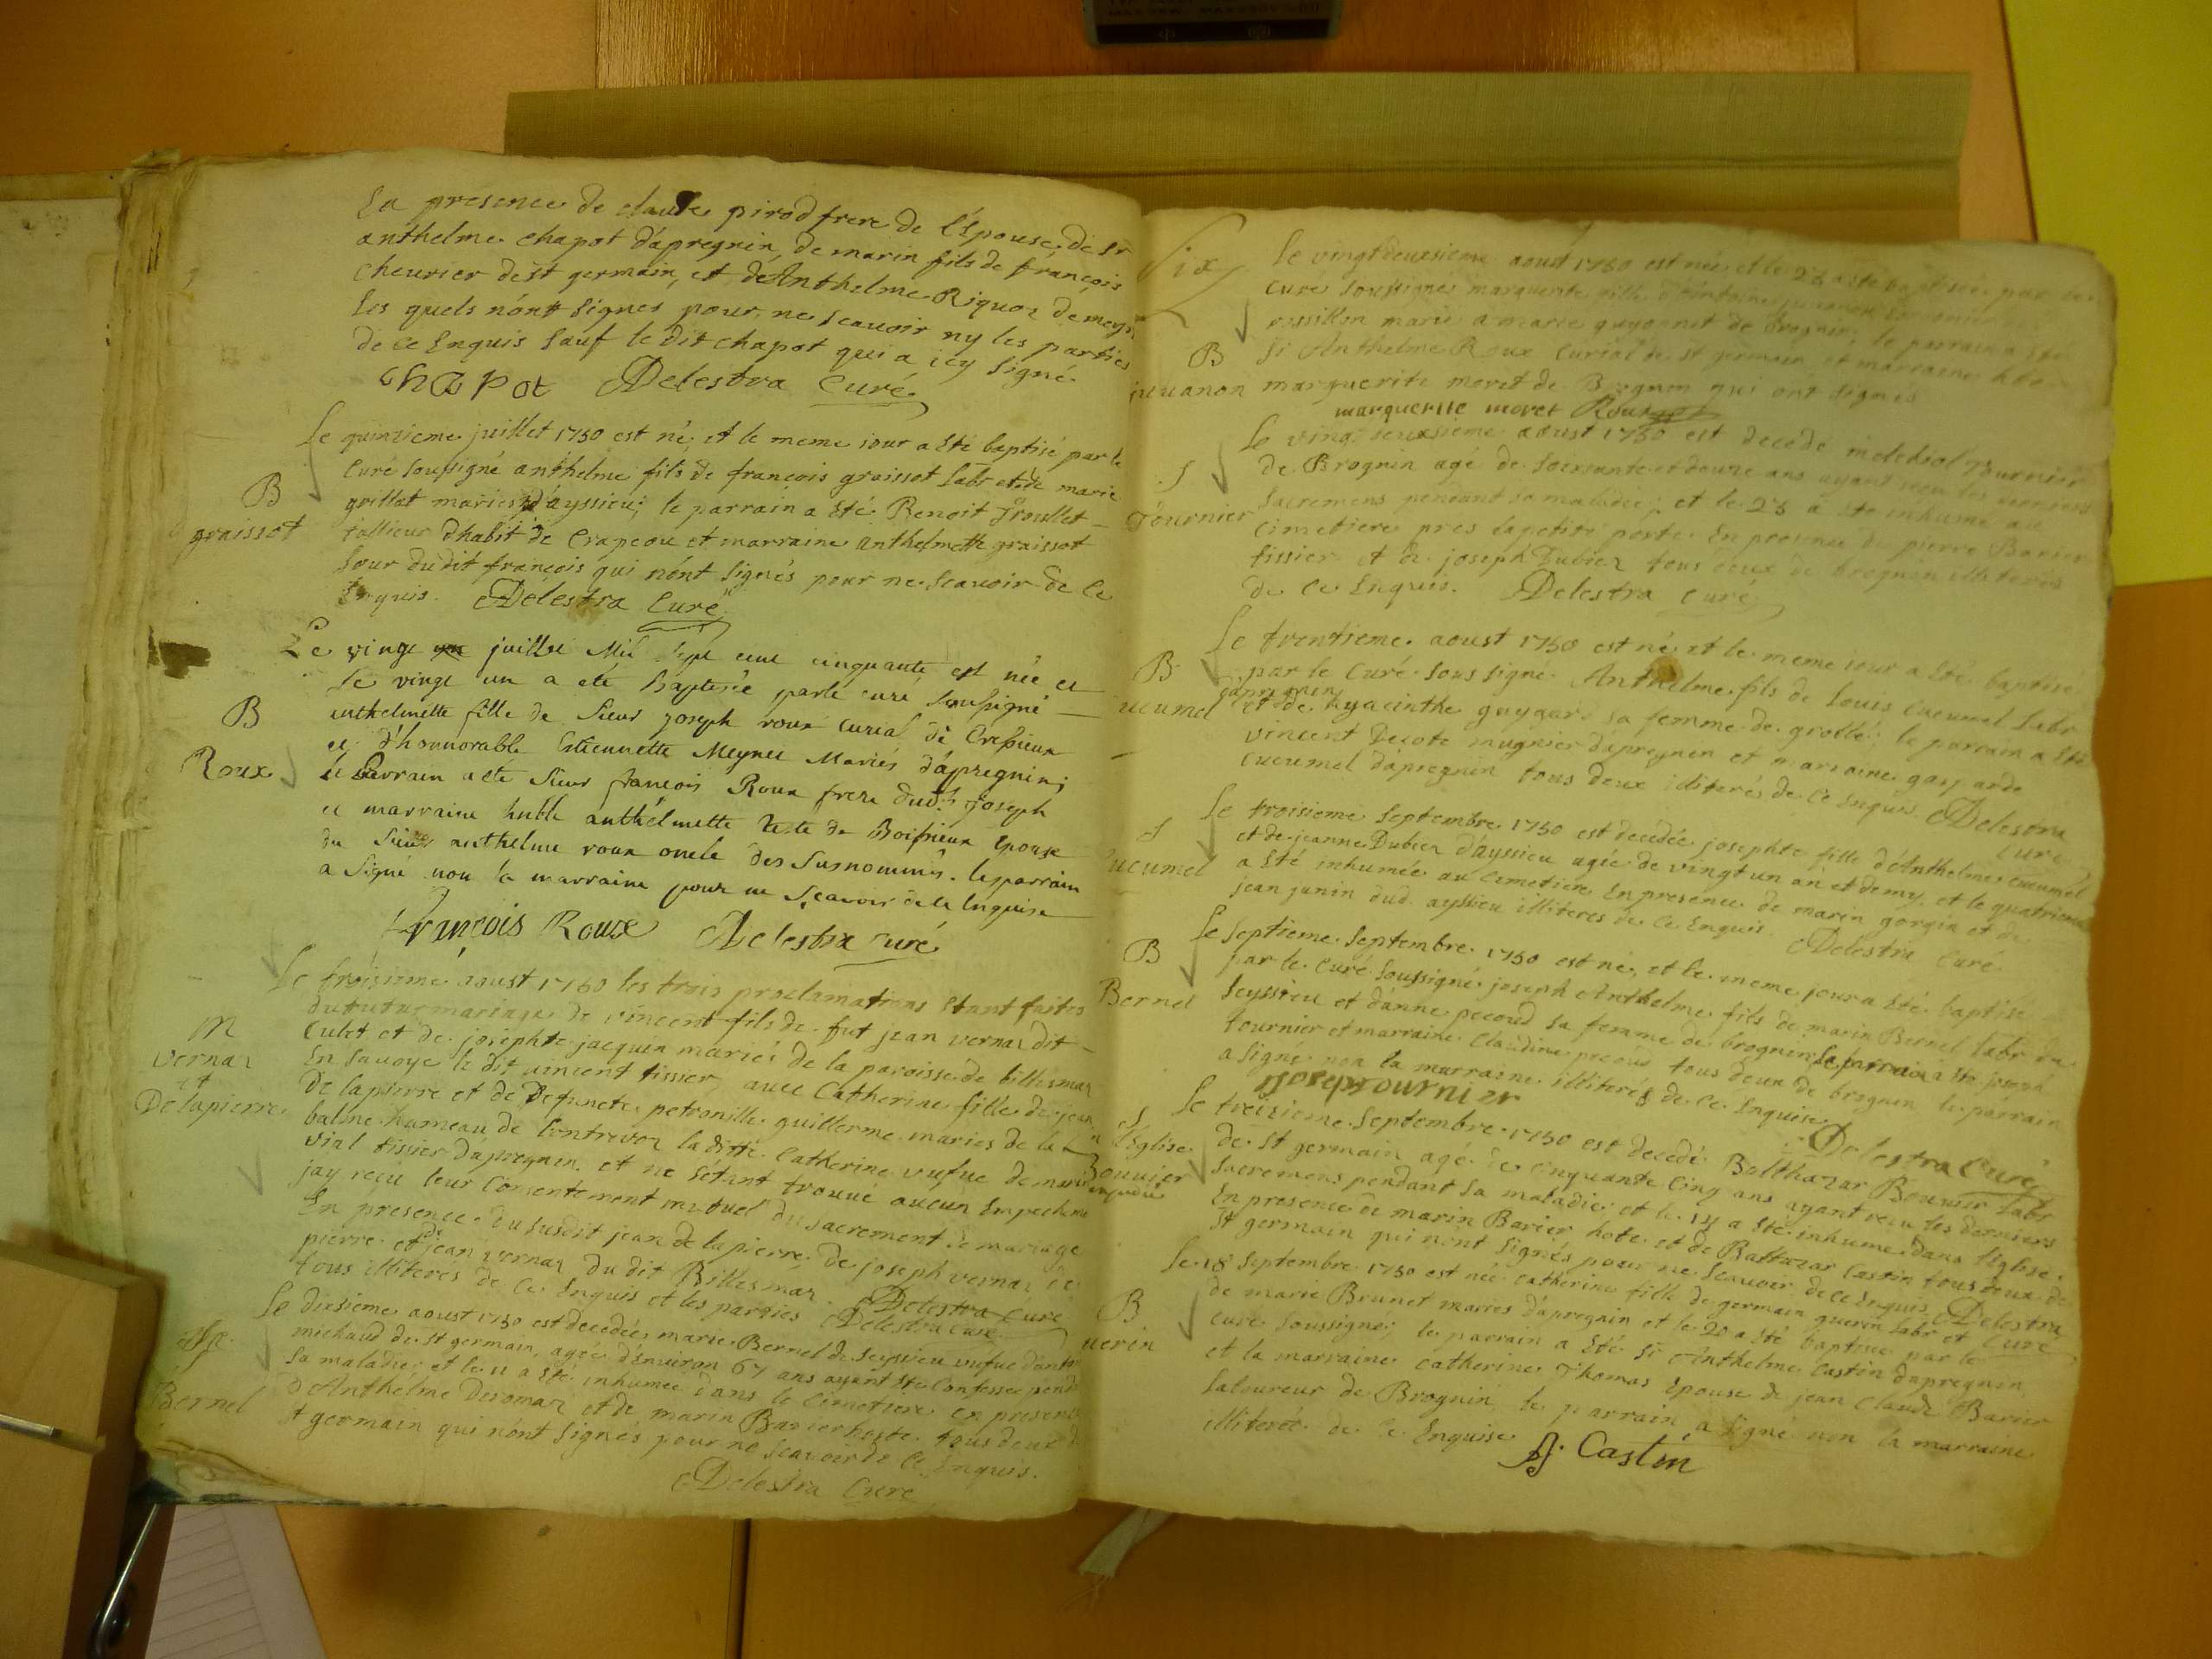 En presence de claude pirod frere de l'Epouse, de sr
anthelme chapot d'apregnin, de marin fils de françois
cheurier de st germain, et de Anthelme Riquoz
Les quels n'ont signés pour ne scavoir ny les parties
de ce Enquis sauf le dit chapot qui a icy signé.
chapot Delestra Curé
Le quinzieme juillet 1750 est né, et le meme iour a eté baptisé par le
B
Curé soussigné anthelme fils de françois graissot Labr et de marie
graissot
grillot mariés d'ayssieu; le parrain a eté Benoit
tallieur d'habit de Crapeou et marraine anthelmette graissot
sœur du dit françois qui n'ont signés pour ne scavoir de ce
Enquis. Delestra Curé
Le vingt juillet Mil sept cent cinquante est née et
le vingt un a eté baptisée par le curé soussigné
B
anthelmette fille de sieur joseph roux curial de
Roux
et d'honnorable Estiennette Meynet Mariés d'apregnin;
le Parrain a eté sieur françois Roux frere dudt joseph
et marraine anthelmette de Boissieux Epouse
du sieur anthelme roux oncle des surnommés. le parrain
a signé non la marraine pour ne scavoir de ce Enquise
François Roux Delestra curé
Le troisieme aoust 1750 les trois proclamations etant faites
M
du futur mariage de vincent fils de fut jean vernaz dit
vernaz
Culet et de josephte jacquin mariés de la paroisse de billiesmaz
et
En savoye le dit vincent tissier, avec Catherine fille de jean
Delapierre
De lapierre et de Defuncte petronille guillerme mariés de la
balme hameau de Contrevoz la ditte Catherine vefue de
vial tissier d'apregnin. et ne s'étant trouué aucun Empecheme
jay reçu leur Consentement mutuel du sacrement de mariage
En presence du susdit jean de lapierre de joseph vernaz de
pierre et de jean vernaz du dit Billesmaz.
tous illiterés de ce Enquis et les parties Delestra Curé
Delestra curé
Le dixsieme aoust 1750 est decedée marie Bernel de seyssieu vefue
michaud de st germain, agée d'Environ 67 ans ayant eté Confessée pend
S
sa maladie; et le 11 a eté inhumée dans le Cimetiere en presence
Bernel
d'Anthelme Deromaz et de marin Barier hoste tous deux d
st germain qui n'ont signés pour ne scavoir de ce Enquis.
Delestra Curé
six
Le vingtdeuxsieme aoust 1750 est née et le 23 a eté baptisée par le
Curé soussigné marguerite fille d'Antoine
marié a marie guyonnet de brognin; le parrain a eté
B
sr Anthelme Roux Curial de st germain et marraine
juuanon
marguerite moret de Brognin qui ont signés
marguerite moret Roux
Le vingt deuxsieme aoust 1750 est decedé melchiol Tournier
de Brognin agé de soixante et douze ans ayant reçu les derniers
S
sacremens pendant sa maladie; et le 23 a eté inhumé au
Tournier
cimetiere pres la petite porte En presence de pierre Barier
tissier et de joseph Dubiez tous deux de brognin illiterés
de ce Enquis. Delestra Curé
Le trentieme aoust 1750 est né et le meme iour a eté baptisé
B
par le Curé soussigné Anthelme fils de Louis Cucumel Labr
d'apregnin
ucumel
et de hyacinthe guygard sa femme de grollé; le parrain a eté
vincent Decote mugnier d'apregnin et marraine gasparde
cucumel d'apregnin tous deux illiterés de ce Enquis Delestra
Curé
Le troisieme septembre 1750 est decedée josephte fille d'Anthelme cucumel
S
et de jeanne Dubiez d'ayssieu agée de vingt un an et demy et le quatrieme
ucumel
a eté inhumée au Cimetiere En presence de marin gorgin et de
jean junin dud. ayssieu illiteres de ce Enquis. Delestra Curé
Le septieme septembre 1750 est né, et le meme jour a eté baptisé
B
par le Curé soussigné joseph Anthelme fils de marin Bernel Labr de
Bernel
seyssieu et d'anne pecoud sa femme de brognin; le parrain a eté joseph
tournier et marraine Claudine pecoud tous deux de brognin le parrain
a signé non la marraine illiterés de ce Enquise
joseptournier
Delestra Curé
Le treizieme septembre 1750 est decedé Balthazar Bouuier Labr
S
Eglise
de st germain agé de Cinquante Cinq ans ayant reçu les derniers
Bouuier
sacremens pendant sa maladie; et le 14 a eté inhumé dans l'Eglise
En presence de marin Barier hote et de Baltazar Castin tous deux de
st germain qui n'ont signés pour ne scavoir de ce Enquis Delestra
Curé
Le 18 septembre 1750 est née catherine fille de germain guerin Labr et
B
de marie Brunet mariés d'apregnin et le 20 a eté baptisée par le
uerin
curé soussigné; le parrain a eté sr Anthelme Castin d'apregnin,
et la marraine catherine Thomas Epouse de jean Claude Barier
Laboureur de Brognin le parrain a signé non la marraine
illiterée de ce Enquise
A. Castin